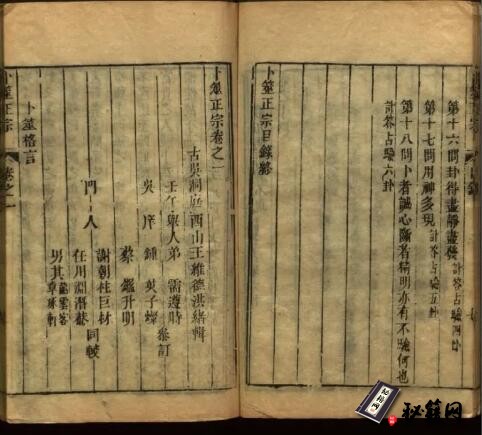 第十六問卦得盡靜盡發 計答占驗四卦
第十七問用神多現 計答占驗五卦
第十八問卜者誠心斷者精明亦有不驗何也
計答占驗六卦
卜筮正宗目錄終
卜筮正宗卷之一
古吳洞庭西山王維德洪緒輯
壬午舉人弟 需遵時
吳庠 鍾英子燦 叅訂
蔡 鑑升明
門人
謝朝柱巨材
任用淵潛菴 同較
男其
卜筮格言
卜筮正宗
卷之一
秘籍网